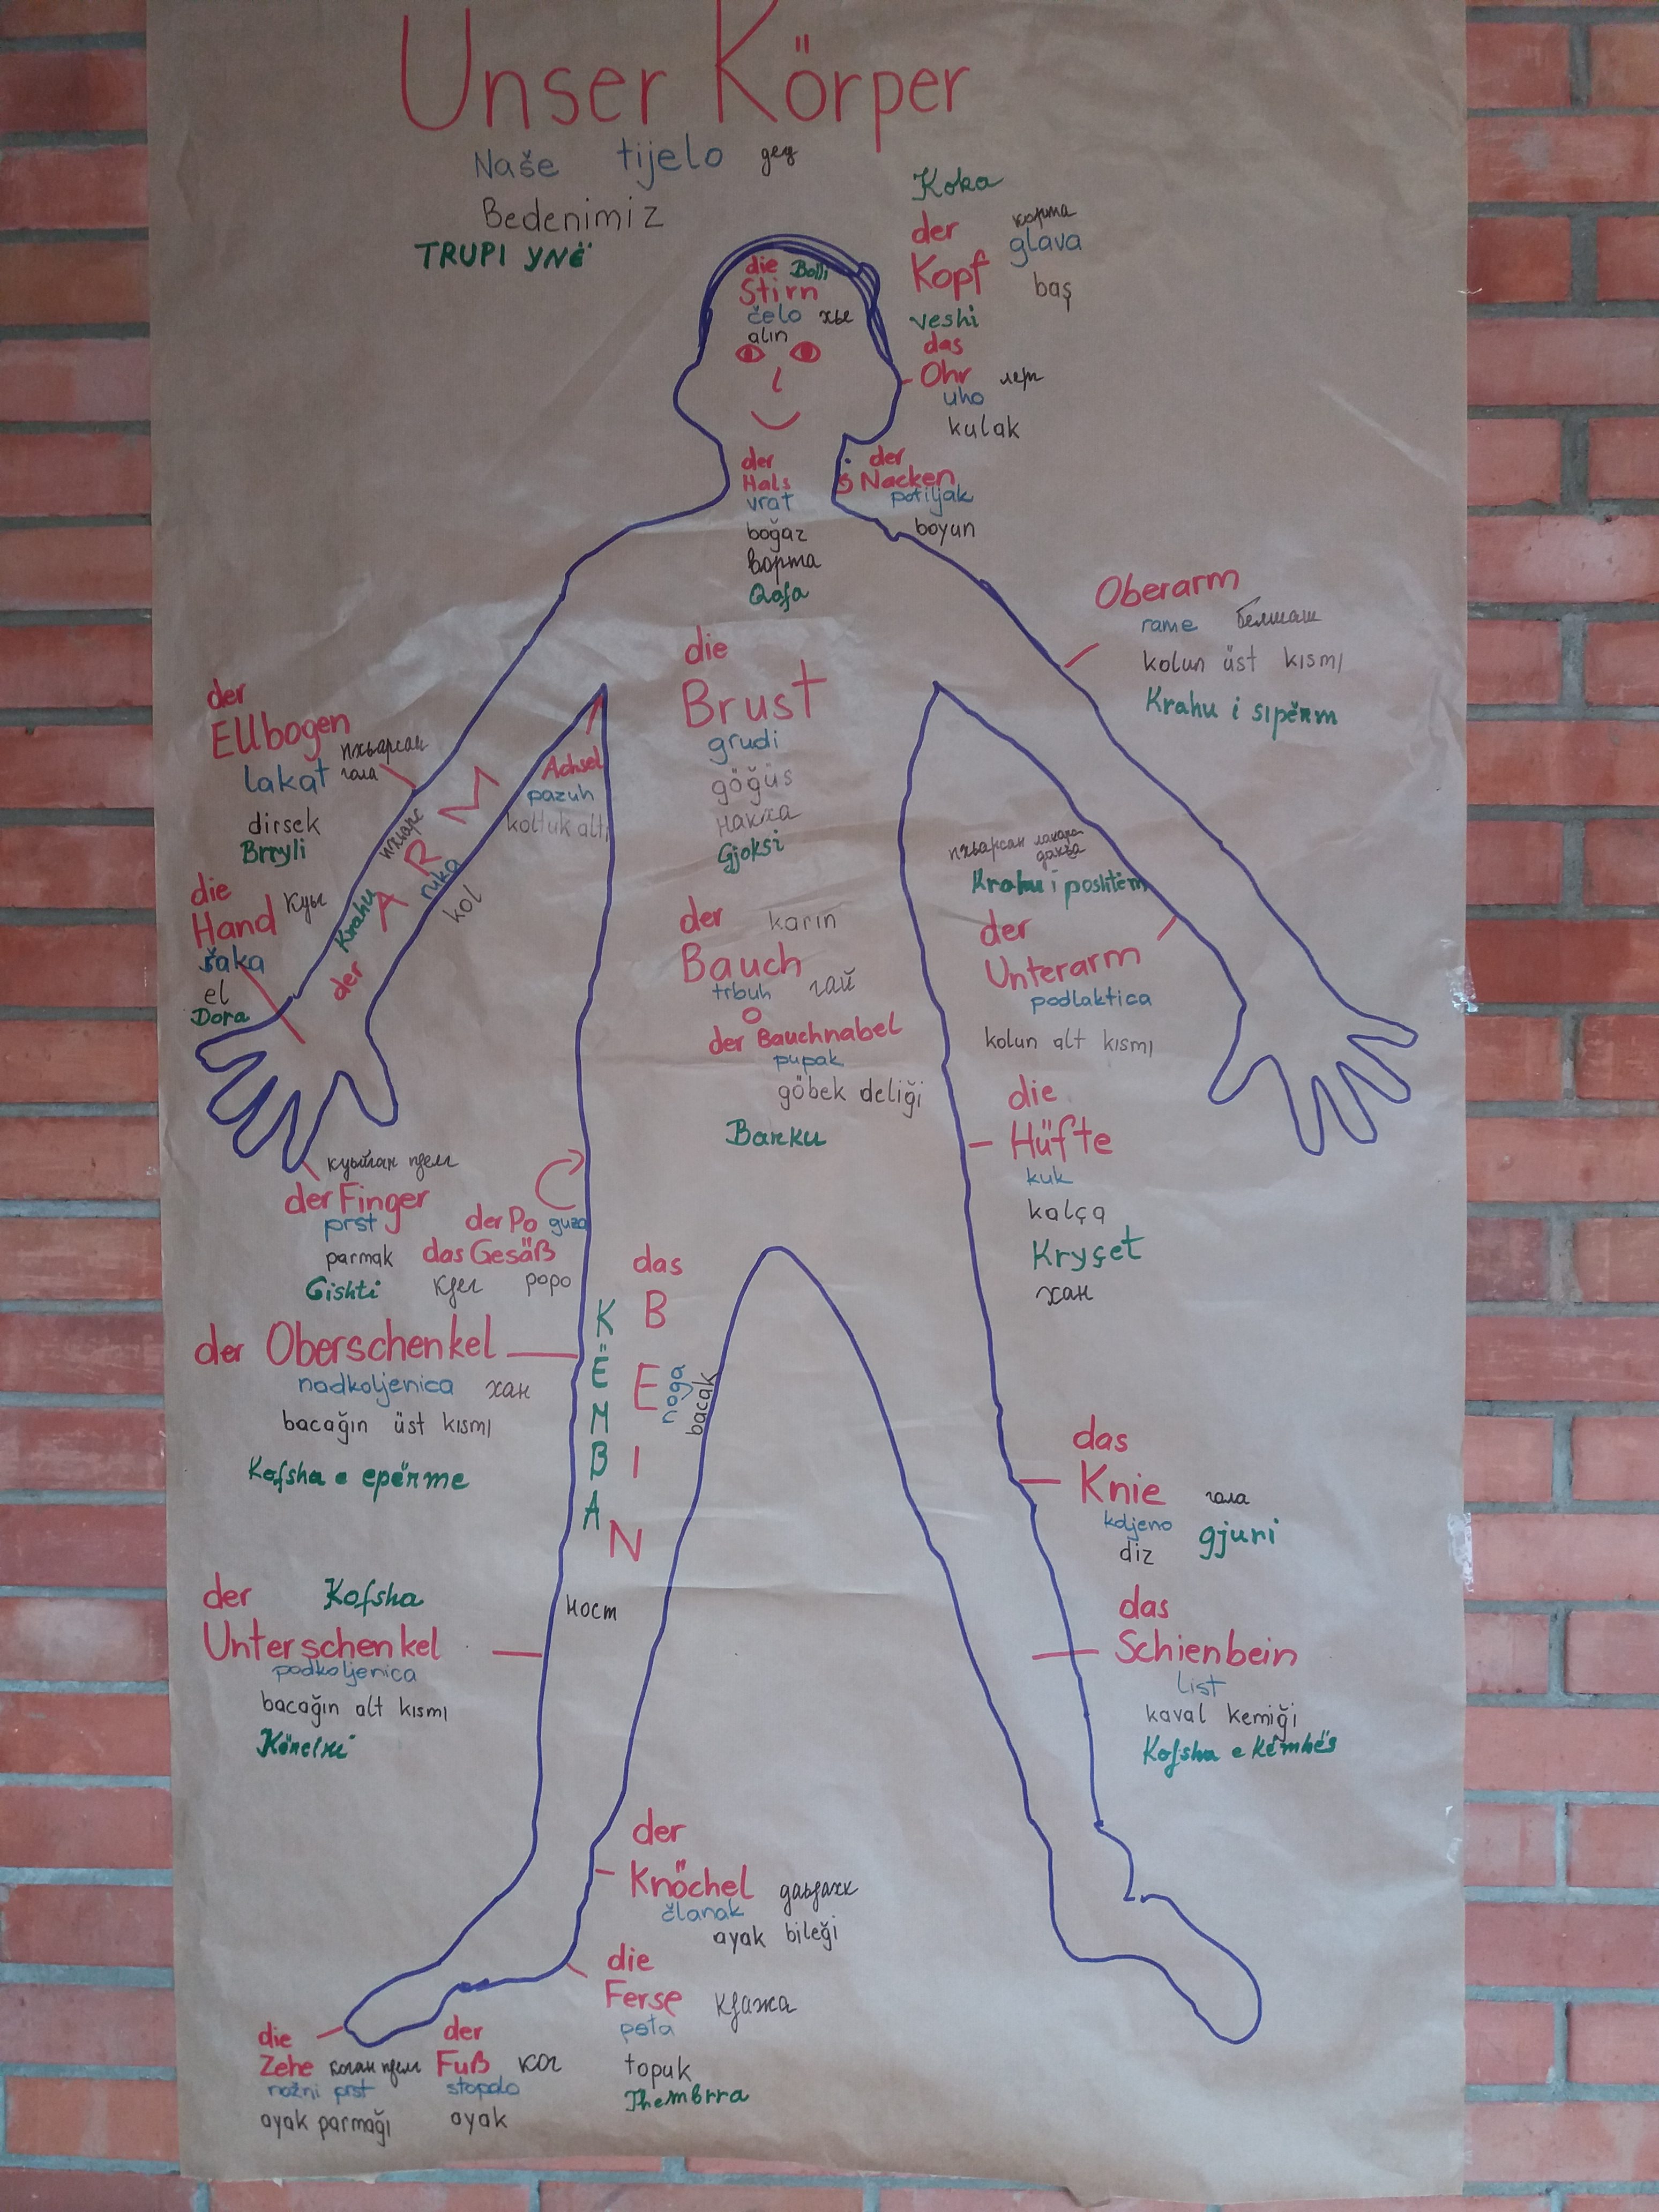 Unser Körper
Naše tijelo дегI
Bedenimiz
TRUPI YNË
Koka
der корта
Kopf glava
baş
die Balli
Stirn
čelo хье
alın
veshi
das
Ohr лерг
uho
kulak
der
Hals
vrat
boğaz
ворта
Qafa
der
Nacken
potiljak
boyun
Oberarm
rame белшаш
kolun üst kısmı
Krahu i sipërm
die
Brust
grudi
göğüs
накха
Gjoksi
der
Ellbogen
lakat пхьарсан
гола
dirsek
Brryli
Achsel
pazuh
koltuk altı
der ARM
пхьарс
Krahu
ruka
kol
die
Hand куьг
šaka
el
Dora
der karın
Bauch
trbuh гай
der Bauchnabel
pupak
göbek deliği
Barku
пхьарсан лахара
дакъа
Krahu i poshtëm
der
Unterarm
podlaktica
kolun alt kısmı
die
Hüfte
kuk
kalça
Kryçet
хан
куьйган пIелг
der Finger
prst
parmak
Gishti
der Po guza
das Gesäß
popo
der Oberschenkel
nadkoljenica хан
bacağın üst kısmı
Kofsha e epërme
KËMBA
das
BEIN
noga
bacak
ност
das
Knie гола
koljeno gjuri
diz
der Kofsha
Unterschenkel
podkoljenica
bacağın alt kısmı
das
Schienbein
list
kaval kemiği
Kofsha e Këmbës
der
Knöchel
članak
ayak bileği
die
Ferse кIажа
peta
topuk
Thembrra
die
Zehe коган пIелг
nožni prst
ayak parmağı
der
Fuß ког
stopalo
ayak